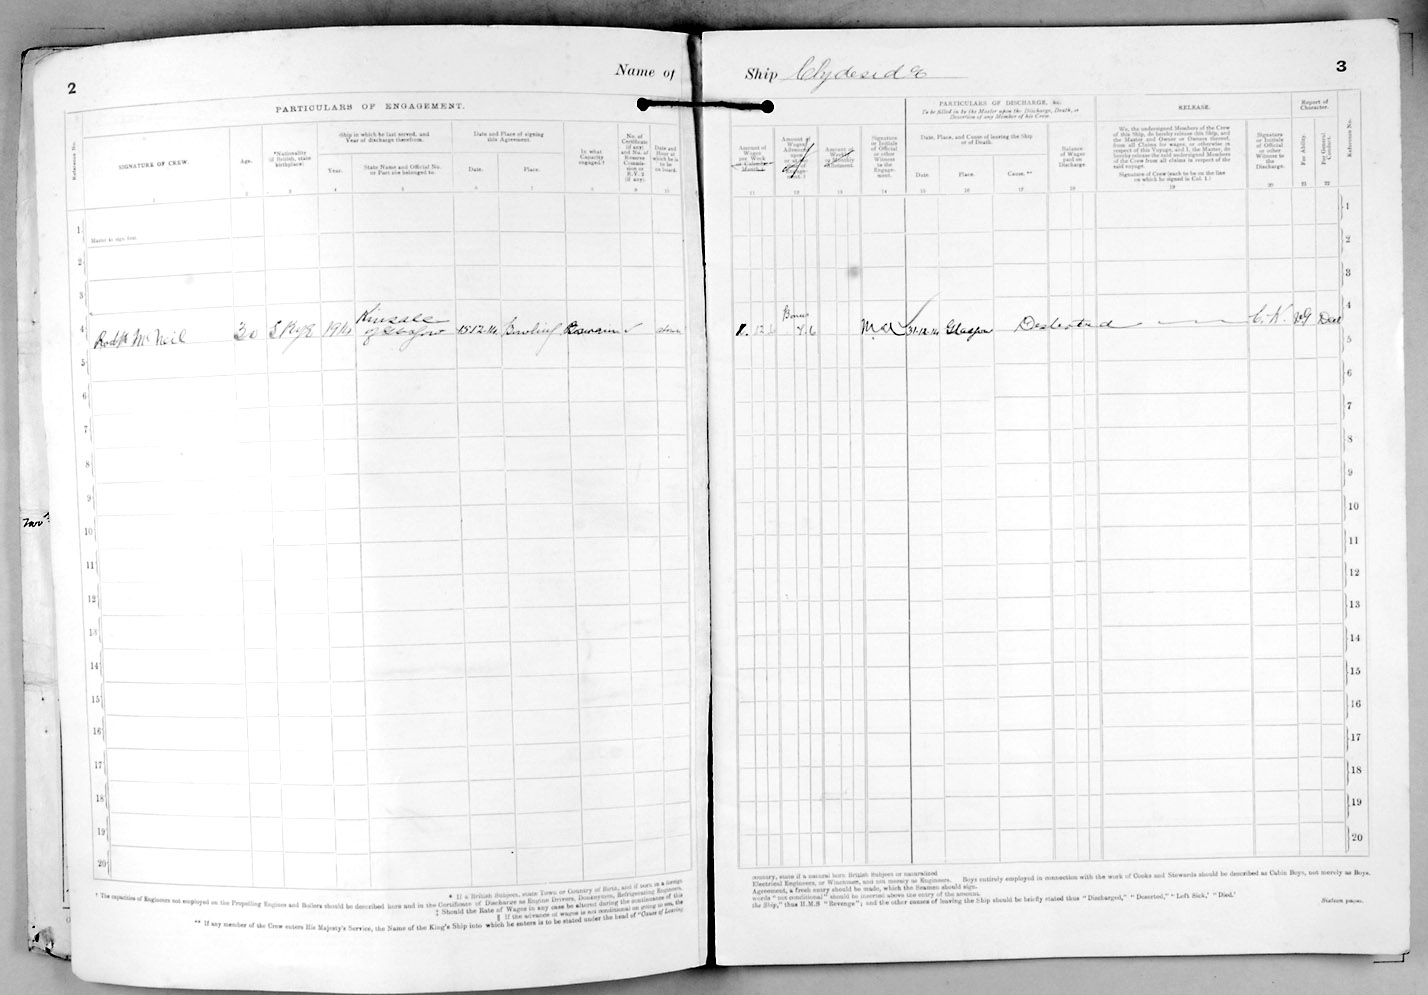 2
Name of
PARTICULARS OF ENGAGEMENT.
Reference No.
SIGNATURE OF CREW.
Age.
*Nationality
(if British, state
birthplace)
Ship in which he last served, and
Year of discharge therefrom.
Year.
State Name and Official No.
or Port she belonged to.
Date and Place of signing
this Agreement.
Date.
Place.
In what
Capacity
engaged.†
No. of
Certificate
(if any)
and No. of
Reserve
Commis-
sion or
R.V. 2
(if any).
Date and
Hour at
which he is
to be
on board.
1 2 3 4 5 6 7 8 9 10
1
Master to sign first
2
3
4
Rodk McNeil 30 Skye 1914 Kinsale
of Glasgow 15.12.14 Bowling
5
6
7
8
9
10
11
12
13
14
15
16
17
18
19
20
* If a British Subject, state Town or Country of Birth, and if born in a foreign
† The capacities of Engineers not employed on the Propelling Engines and Boilers should be described here and in the Certificate of Discharge as Engine Drivers, Donkeymen, Refrigerating Engineers,
‡ Should the Rate of Wages in any case be altered during the continuance of this
§ If the advance of wages is not conditional on going to sea, the
** If any member of the Crew enters His Majesty's Service, the Name of the King's Ship into which he enters is to be stated under the head of "Cause of Leaving
Ship Clydesdale
3
PARTICULARS OF DISCHARGE, &c.
To be filled in by the Master upon the Discharge, Death, or
Desertion of any Member of his Crew
RELEASE.
Report of
Character.
Amount of
Wages
per Week
Calendar
Month.‡
Amount of
Wages
Advanced
upon
Engage-
ment.§
Amount of
Weekly
or Monthly
Allotment.
Signature
or Initials
of Official
or other
Witness
to the
Engage-
ment.
Date, Place, and Cause of leaving the Ship
or of Death.
Date.
Place.
Cause.**
Balance
of Wages
paid on
Discharge.
We, the undersigned Members of the Crew
of this Ship, do hereby release this Ship, and
the Master and Owner or Owners thereof,
from all Claims for wages, or otherwise in
respect of this Voyage, and I, the Master, do
hereby release the said undersigned Members
of the Crew from all claims in respect of the
said voyage.
Signature of Crew (each to be on the line
on which he signed in Col. 1.)
Signature
or Initials
of Official
or other
Witness to
the
Discharge.
For Ability.
For General
Conduct.
Reference No.
11 12 13 14 15 16 17 18 19 20 21 22
1
2
3
4
Bonus
31.12.14 Glasgow C.K. VG
5
6
7
8
9
10
11
12
13
14
15
16
17
18
19
20
country, state if a natural born British Subject or naturalized
Electrical Engineers, or Winchmen, and not merely as Engineers. Boys entirely employed in connection with the work of Cooks and Stewards should be described as Cabin Boys, not merely as Boys.
Agreement, a fresh entry should be made, which the Seamen should sign.
words "not conditional" should be inserted above the entry of the amount.
the Ship," thus H.M.S "Revenge"; and the other causes of leaving the Ship should be briefly stated thus "Discharged," "Deserted," "Left Sick," "Died."
Sixteen pages.